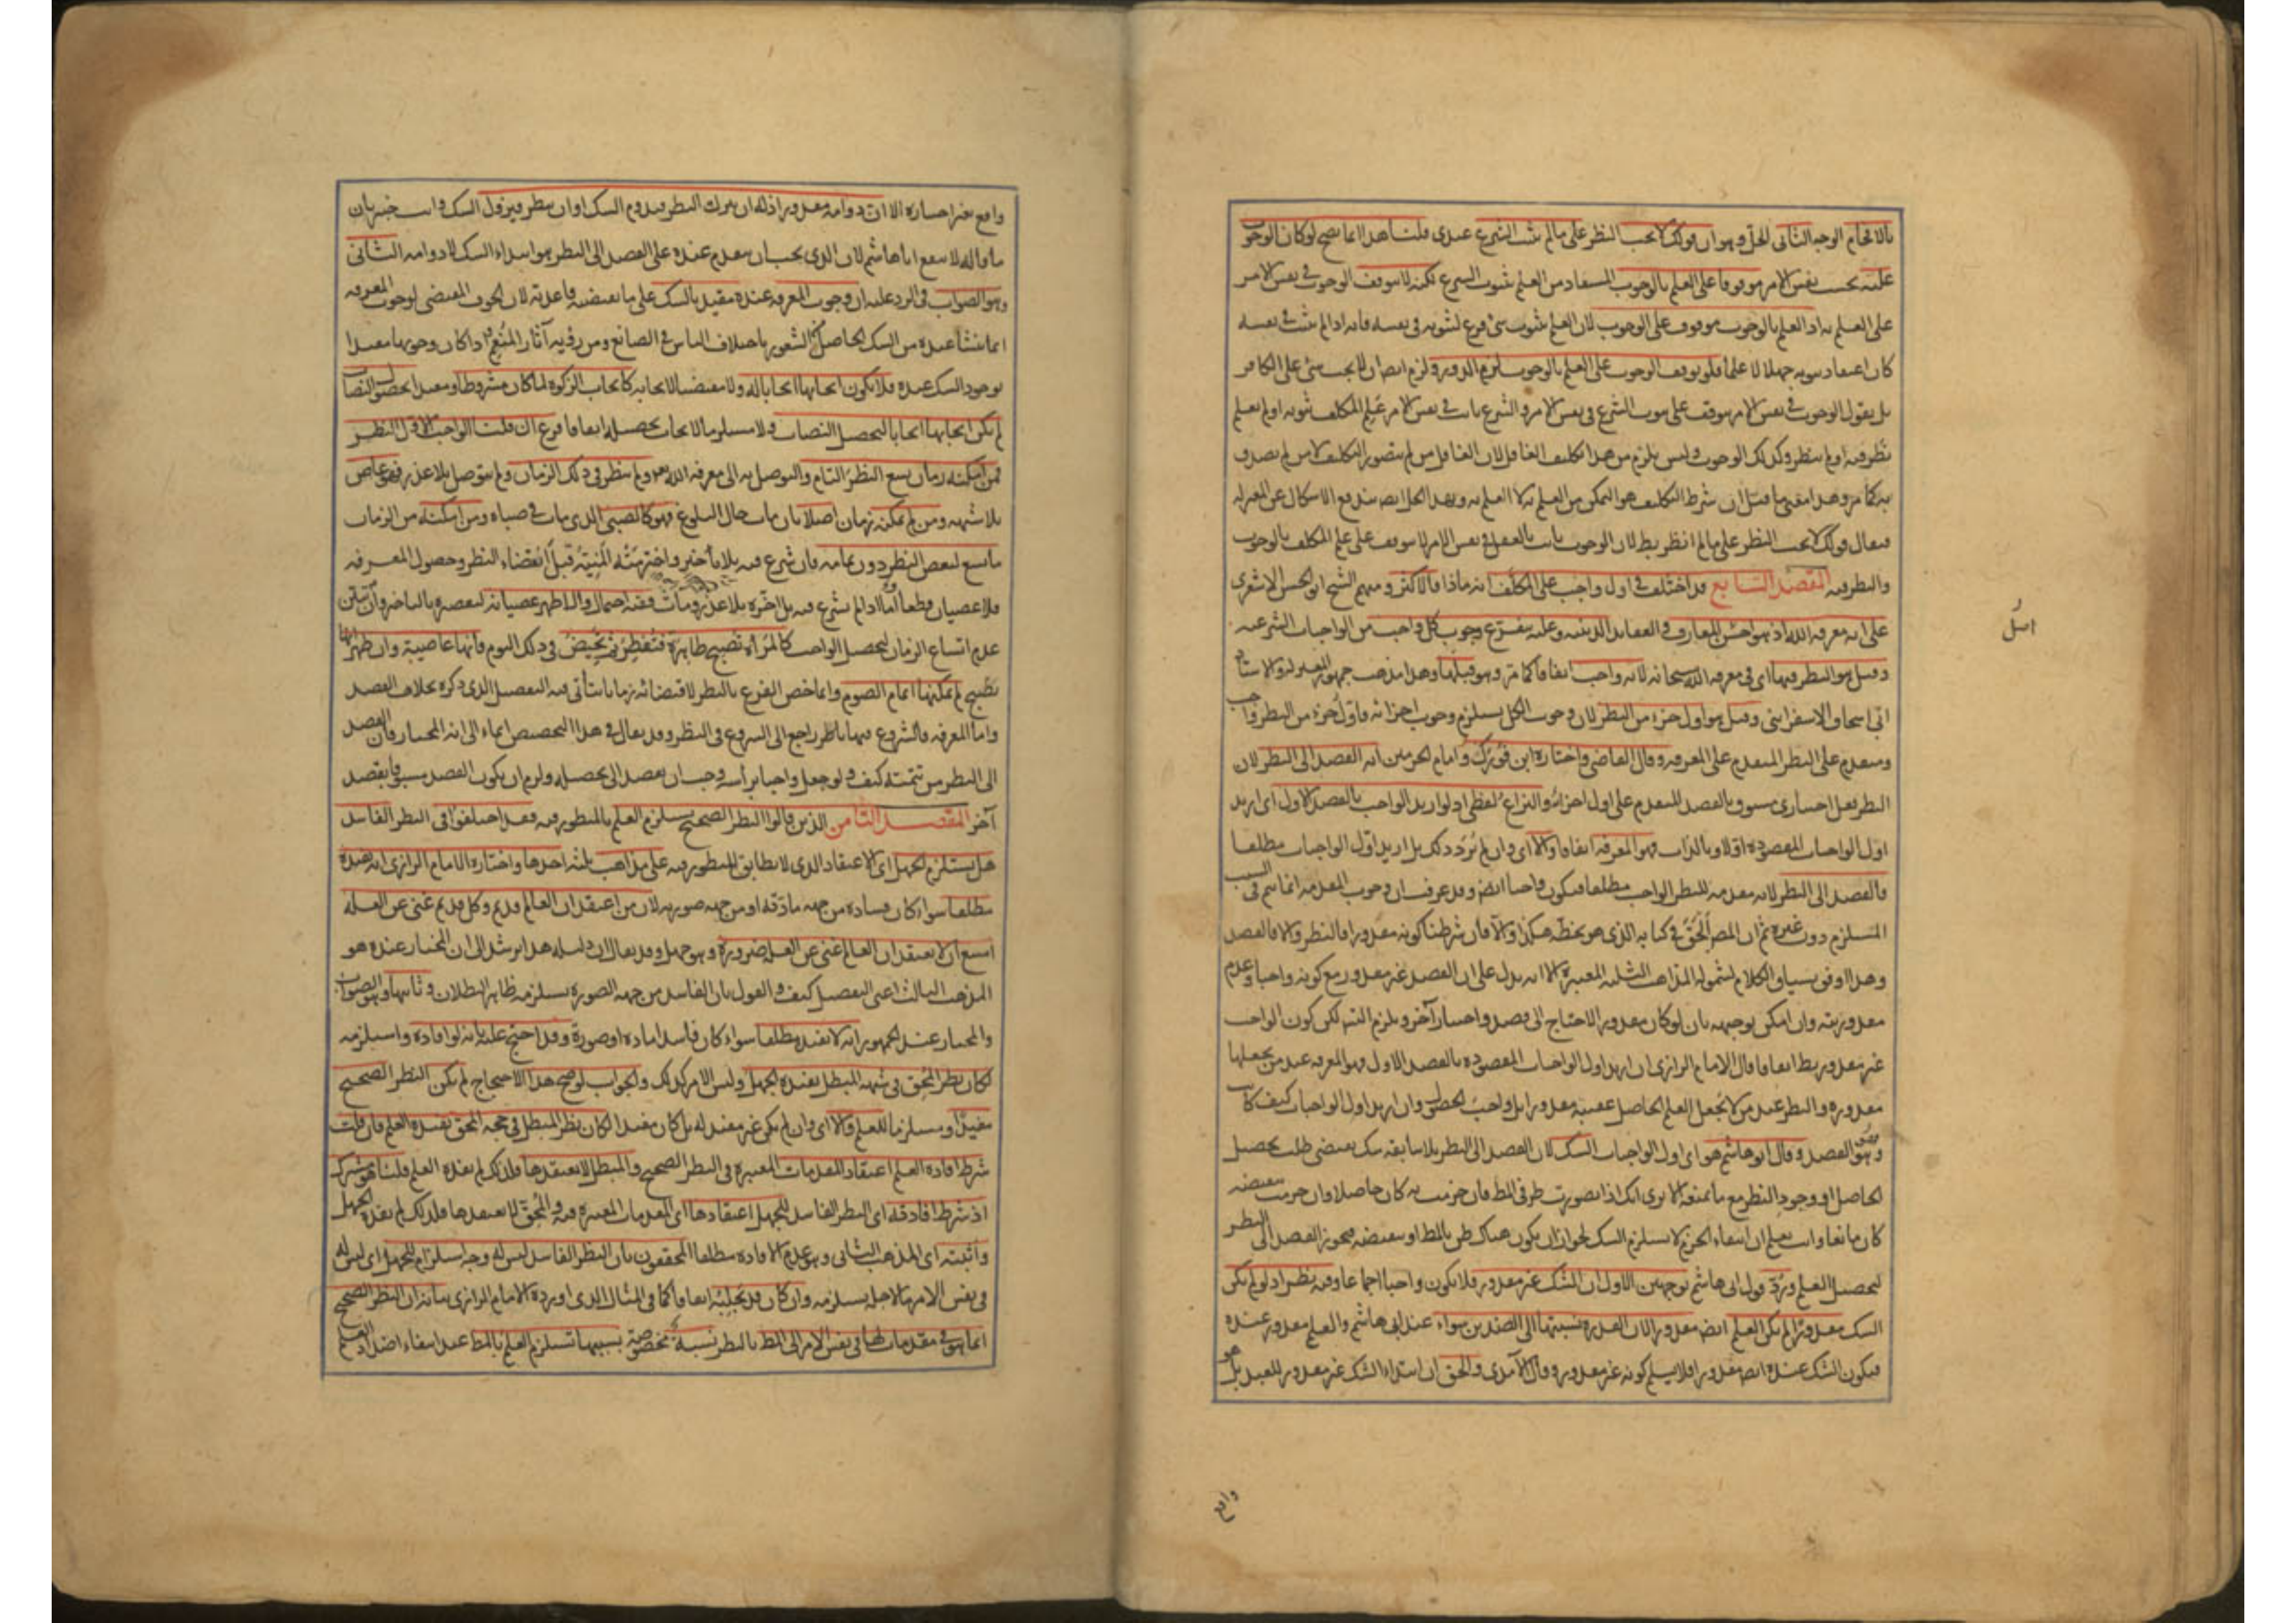 بالافحام الوجه الثاني الحل وهو ان قولك لا يجب النظر علي ما لم يثبت الشرع عندي قلنا هذا انما يصح لو كان الوجوب
عليه بحسب نفس الامر موقوفا علي العلم بالوجوب المستفاد من العلم بثبوت الشرع لكنه لا يتوقف الوجوب في نفس الامر
علي العلم به اذ العلم بالوجوب موقوف علي الوجوب لان العلم بثبوت شئ فرع لثبوته في نفسه فانه اذا لم يثبت في نفسه
كان اعتقاد ثبوته جهلا لا علما فلو توقف الوجوب علي العلم بالوجوب لزم الدور ولزم ايضا ان لا يجب شئ علي الكافر
بل يقول الوجوب في نفس الامر يتوقف علي ثبوت الشرع في نفس الامر والشرع ثابت في نفس الامر علم المكلف ثبوته او لم يعلم
نظر فيه او لم ينظر وكذلك الوجوب وليس يلزم من هذا تكليف الغافل لان الغافل من لم يتصور التكليف لا من لم يصدق
به كما مر وهذا معني ما قيل ان شرط التكليف هو التمكن من العلم به لا العلم به وبهذا الحل ايضا يندفع الاشكال عن المعتزلة
فيقال قولك لا يجب النظر علي ما لم انظر بط لان الوجوب ثابت بالعقل في نفس الامر لا يتوقف علي علم المكلف بالوجوب
والنظر فيه المقصد السابع قد اختلف في اول واجب علي المكلف انه ماذا فالاكثر ومنهم الشيخ ابو الحسن الاشعري
علي انه معرفة الله اذ هو اصل المعارف والعقايد الدينية وعليه يتفرع وجوب كل واجب من الواجبات الشرعية
وقيل هو النظر فيها اي في معرفة الله سبحانه لانه واجب اتفاقا كما مر وهو قبلها وهذا مذهب جمهور المعتزلة والاستاذ
ابي اسحاق الاسفرايني وقيل هو اول جزء من النظر لان وجوب الكل يستلزم وجوب اجزائه فاول جزء من النظر واجب
ومتقدم علي النظر المتقدم علي المعرفة وقال القاضي واختاره ابن فورك وامام الحرمين انه القصد الي النظر لان
النظر فعل اختياري مسبوق بالقصد المتقدم علي اول اجزائه والنزاع لفظي اذ لو اريد الواجب بالقصد الاول اي اريد
اول الواجبات المقصودة اولا وبالذات فهو المعرفة اتفاقا والا اي وان لم يرد ذلك بل اريد اول الواجبات مطلقا
فالقصد الي النظر لانه مقدمة للنظر الواجب مطلقا فيكون واجبا ايضا وقد عرفت ان وجوب المقدمة انما يتم في السبب
المستلزم دون غيره ثم ان المص الحق في كتابه الذي هو بخطه هكذا والا فان شرطنا كونه مقدورا فالنظر والا فالقصد
وهذا اوفق بسياق الكلام لشموله المذاهب الثلثة المعتبرة الا انه يدل علي ان القصد غير مقدور مع كونه واجبا وعدم
مقدوريته وان امكن توجيهه بان لو كان مقدورا لاحتاج الي قصد واختيار آخر ويلزم التس لكن كون الواجب
غير مقدور بط اتفاقا قال الامام الرازي ان اريد اول الواجبات المقصودة بالقصد الاول فهو المعرفة عند من يجعلها
مقدورة والنظر عند من لا يجعل العلم الحاصل عقيبه مقدورا بل واجب الحصول وان اريد اول الواجبات كيف كانت
فهو القصد وقال ابو هاشم هو اي اول الواجبات الشك لان القصد الي النظر بلا سابقة شك يقتضي طلب تحصيل
الحاصل او وجود النظر مع ما يمنعه الا تري انك اذا تصورت طرفي المط فان جزمت به كان حاصلا وان جزمت بنقيضه
كان مانعا وانت تعلم ان انتفاء الجزم لا يستلزم الشك لجواز ان يكون هناك ظن بالمط او بنقيضه فيجوز القصد الي النظر
لتحصيل العلم ورد قول ابي هاشم بوجهين الاول ان الشك غير مقدور فلا يكون واجبا اجماعا وفيه نظر اذ لو لم يكن
الشك مقدورا لم يكن العلم ايضا مقدورا لان القدرة نسبتها الي الضدين سواء عند ابي هاشم والعلم مقدور عنده
فيكون الشك عنده ايضا مقدورا فلا يسلم كونه غير مقدور وقال الآمدي والحق ان ابتداء الشك غير مقدور للعبد بل هو
واقع
واقع بغير اختياره الا ان دوامه مقدور اذ له ان يترك النظر فيدوم الشك او ان ينظر فيزول الشك وانت خبير بان
ما قاله لا ينفع ابا هاشم لان الذي يجب ان يتقدم عنده علي القصد الي النظر هو ابتداء الشك لا دوامه الثاني
وهو الصواب في الرد عليه ان وجوب المعرفة عنده مقيد بالشك علي ما تقتضيه قاعدته لان الخوف المقتضي لوجوب المعرفة
انما ينشأ عنده من الشك الحاصل من الشعور باختلاف الناس في الصانع ومن رؤية آثار النعم واذا كان وجوبها مقيدا
بوجود الشك عنده فلا يكون ايجابها ايجابا له ولا مقتضيا لايجابه كايجاب الزكوة لما كان مشروطا ومقيدا بحصول النصاب
لم يكن ايجابها ايجابا لتحصيل النصاب ولا مستلزما لايجاب تحصيله اتفاقا فرع ان قلنا الواجب الاول النظر
فمن امكنه زمان يسع النظر التام والتوصل به الي معرفة الله تعالي ولم ينظر في ذلك الزمان ولم يتوصل بلا عذر فهو عاص
بلا شبهة ومن لم يمكنه زمان اصلا بان مات حال البلوغ فهو كالصبي الذي مات في صباه ومن امكنه من الزمان
ما يسع لبعض النظر دون تمامه فان شرع فيه بلا تأخير واخترمته المنية قبل انقضاء النظر وحصول المعرفة
فلا عصيان قطعا واما اذا لم يشرع فيه بل اخره بلا عذر ومات ففيه احتمال والاظهر عصيانه لتقصيره بالتاخير وان تبين
عدم اتساع الزمان لتحصيل الواجب كالمرأة تصبح طاهرة فتفطر ثم تحيض في ذلك اليوم فانها عاصية وان ظهر انها
لم يمكنها اتمام الصوم وانما خص الفرع بالنظر لاقتضائه زمانا يتأتي فيه التفصيل الذي ذكره بخلاف القصد
واما المعرفة فالشروع فيها بالنظر راجع الي الشروع في النظر وقد يقال في هذا التخصيص ايماء الي انه المختار فان القصد
الي النظر من تتمته كيف ولو جعل واجبا برأسه وجب ان يقصد الي تحصيله ولزم ان يكون القصد مسبوقا بقصد
آخر المقصد الثامن الذين قالوا النظر الصحيح يستلزم العلم بالمنظور فيه فقد اختلفوا في النظر الفاسد
هل يستلزم الجهل اي الاعتقاد الذي لا يطابق المنظور فيه علي مذاهب ثلثة احدها واختاره الامام الرازي انه يفيده
مطلقا سواء كان فساده من جهة مادته او من جهة صورته لان من اعتقد ان العالم قديم وكل قديم غني عن العلة
امتنع ان لا يعتقد ان العالم غني عن العلة ضرورة وهو جهل وقد يقال ان دليله هذا يرشد الي ان المختار عنده هو
المذهب الثالث اعني التفصيل كيف والقول بان الفاسد من جهة الصورة يستلزمه ظاهر البطلان وثانيها وهو الصواب
والمختار عند الجمهور انه لا يفيده مطلقا سواء كان فاسدا مادة او صورة وقد احتج عليه بانه لو افاده واستلزمه
لكان نظر المحق في شبهة المبطل يفيده الجهل وليس الامر كذلك والجواب لو صح هذا الاحتجاج لم يكن النظر الصحيح
مفيدا ومستلزما للعلم والا اي وان لم يكن غير مفيد له بل كان مفيدا لكان نظر المبطل في حجة المحق يفيده العلم فان قلت
شرط افادة العلم اعتقاد المقدمات المعتبرة في النظر الصحيح والمبطل لا يعتقدها فلذلك لم يفده العلم قلنا هو مشترك
اذ شرط افادته اي النظر الفاسد للجهل اعتقادها اي المقدمات المعتبرة فيه والمحق لا يعتقدها فلذلك لم يفده الجهل
واثبته اي المذهب الثاني وهو عدم الافادة مطلقا المحققون بان النظر الفاسد ليس له وجه استلزام للجهل اي ليس له
في نفس الامر ما لاجله يستلزمه وان كان قد يجلبه اتفاقا كما في المثال الذي اورده الامام الرازي بيانه ان النظر الصحيح
انما هو في مقدمات لها في نفس الامر الي المط بالنظر نسبة مخصوصة بسببها تستلزم العلم بالمط عند انتفاء اضداد العلم